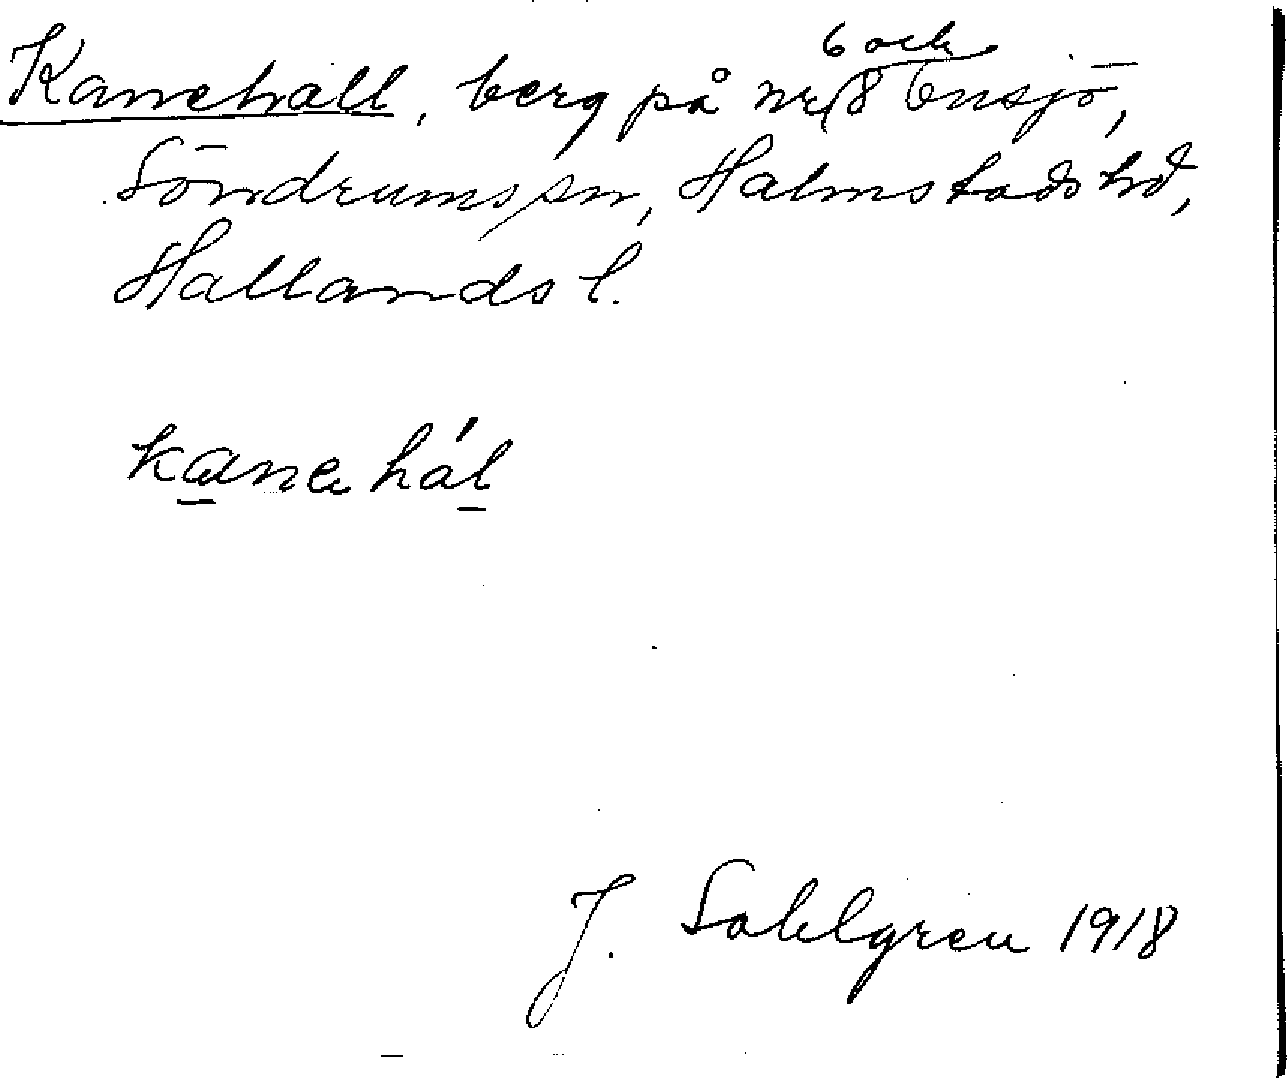 Kanehall, berg på nr 6 och 8 Ensjö,
Söndrums sn, Halmstads hd,
Hallands l.
kanehál
J. Sahlgren 1918